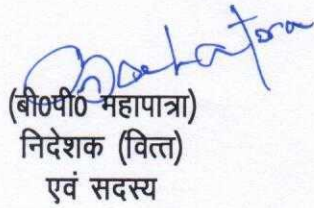 (बी0पी0 महापात्रा)
निदेशक (वित्त)
एवं सदस्य